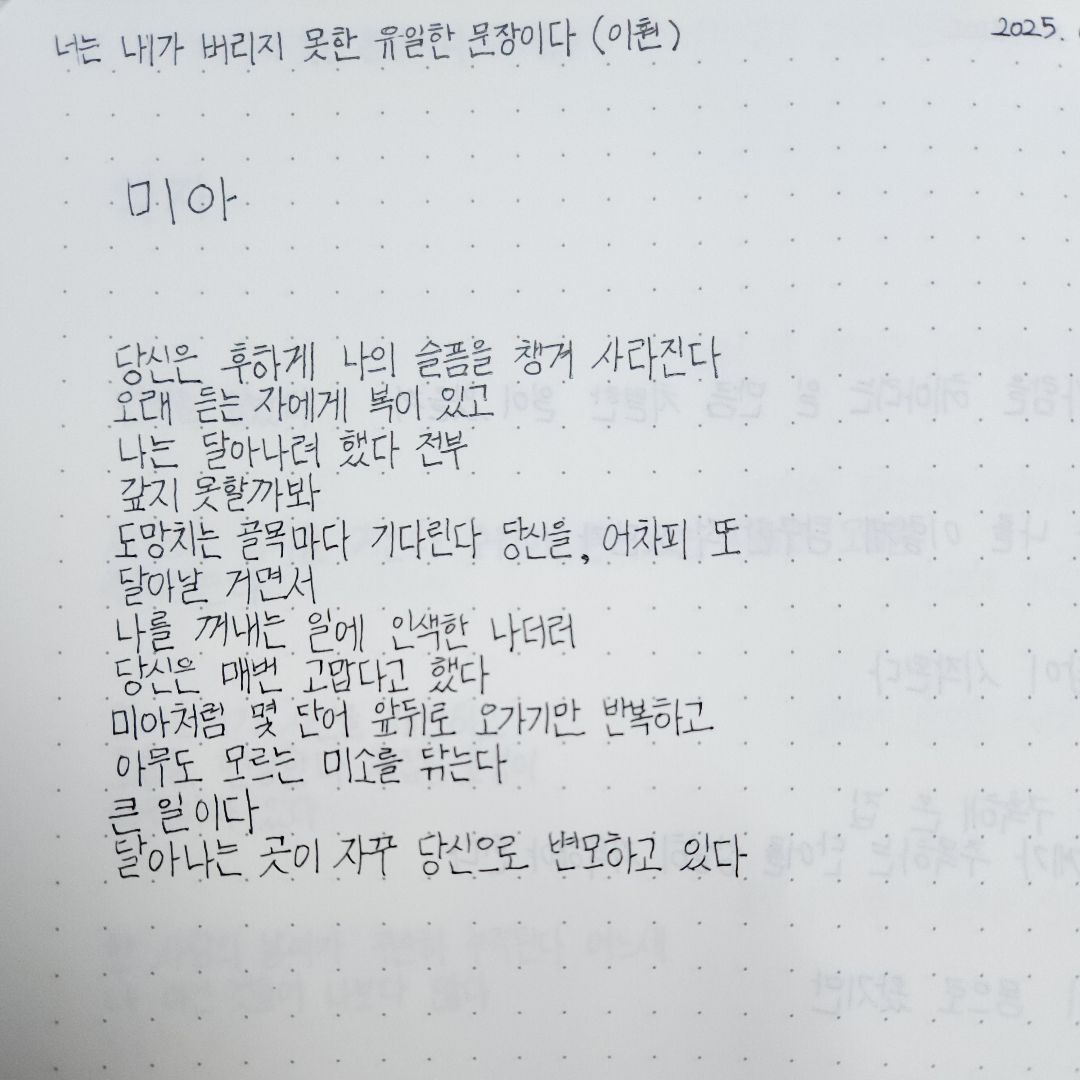 너는 내가 버리지 못한 유일한 문장이다 (이훤)
2025.
미아
당신은 후하게 나의 슬픔을 챙겨 사라진다
오래 듣는 자에게 복이 있고
나는 달아나려 했다 전부
갚지 못할까봐
도망치는 골목마다 기다린다 당신을, 어차피 또
달아날 거면서
나를 꺼내는 일에 인색한 나더러
당신은 매번 고맙다고 했다
미아처럼 몇 단어 앞뒤로 오가기만 반복하고
아무도 모르는 미소를 닦는다
큰 일이다
달아나는 곳이 자꾸 당신으로 변모하고 있다